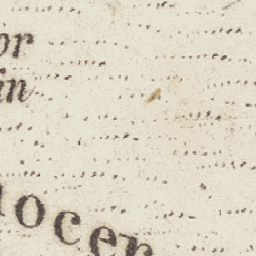 or
in
locer